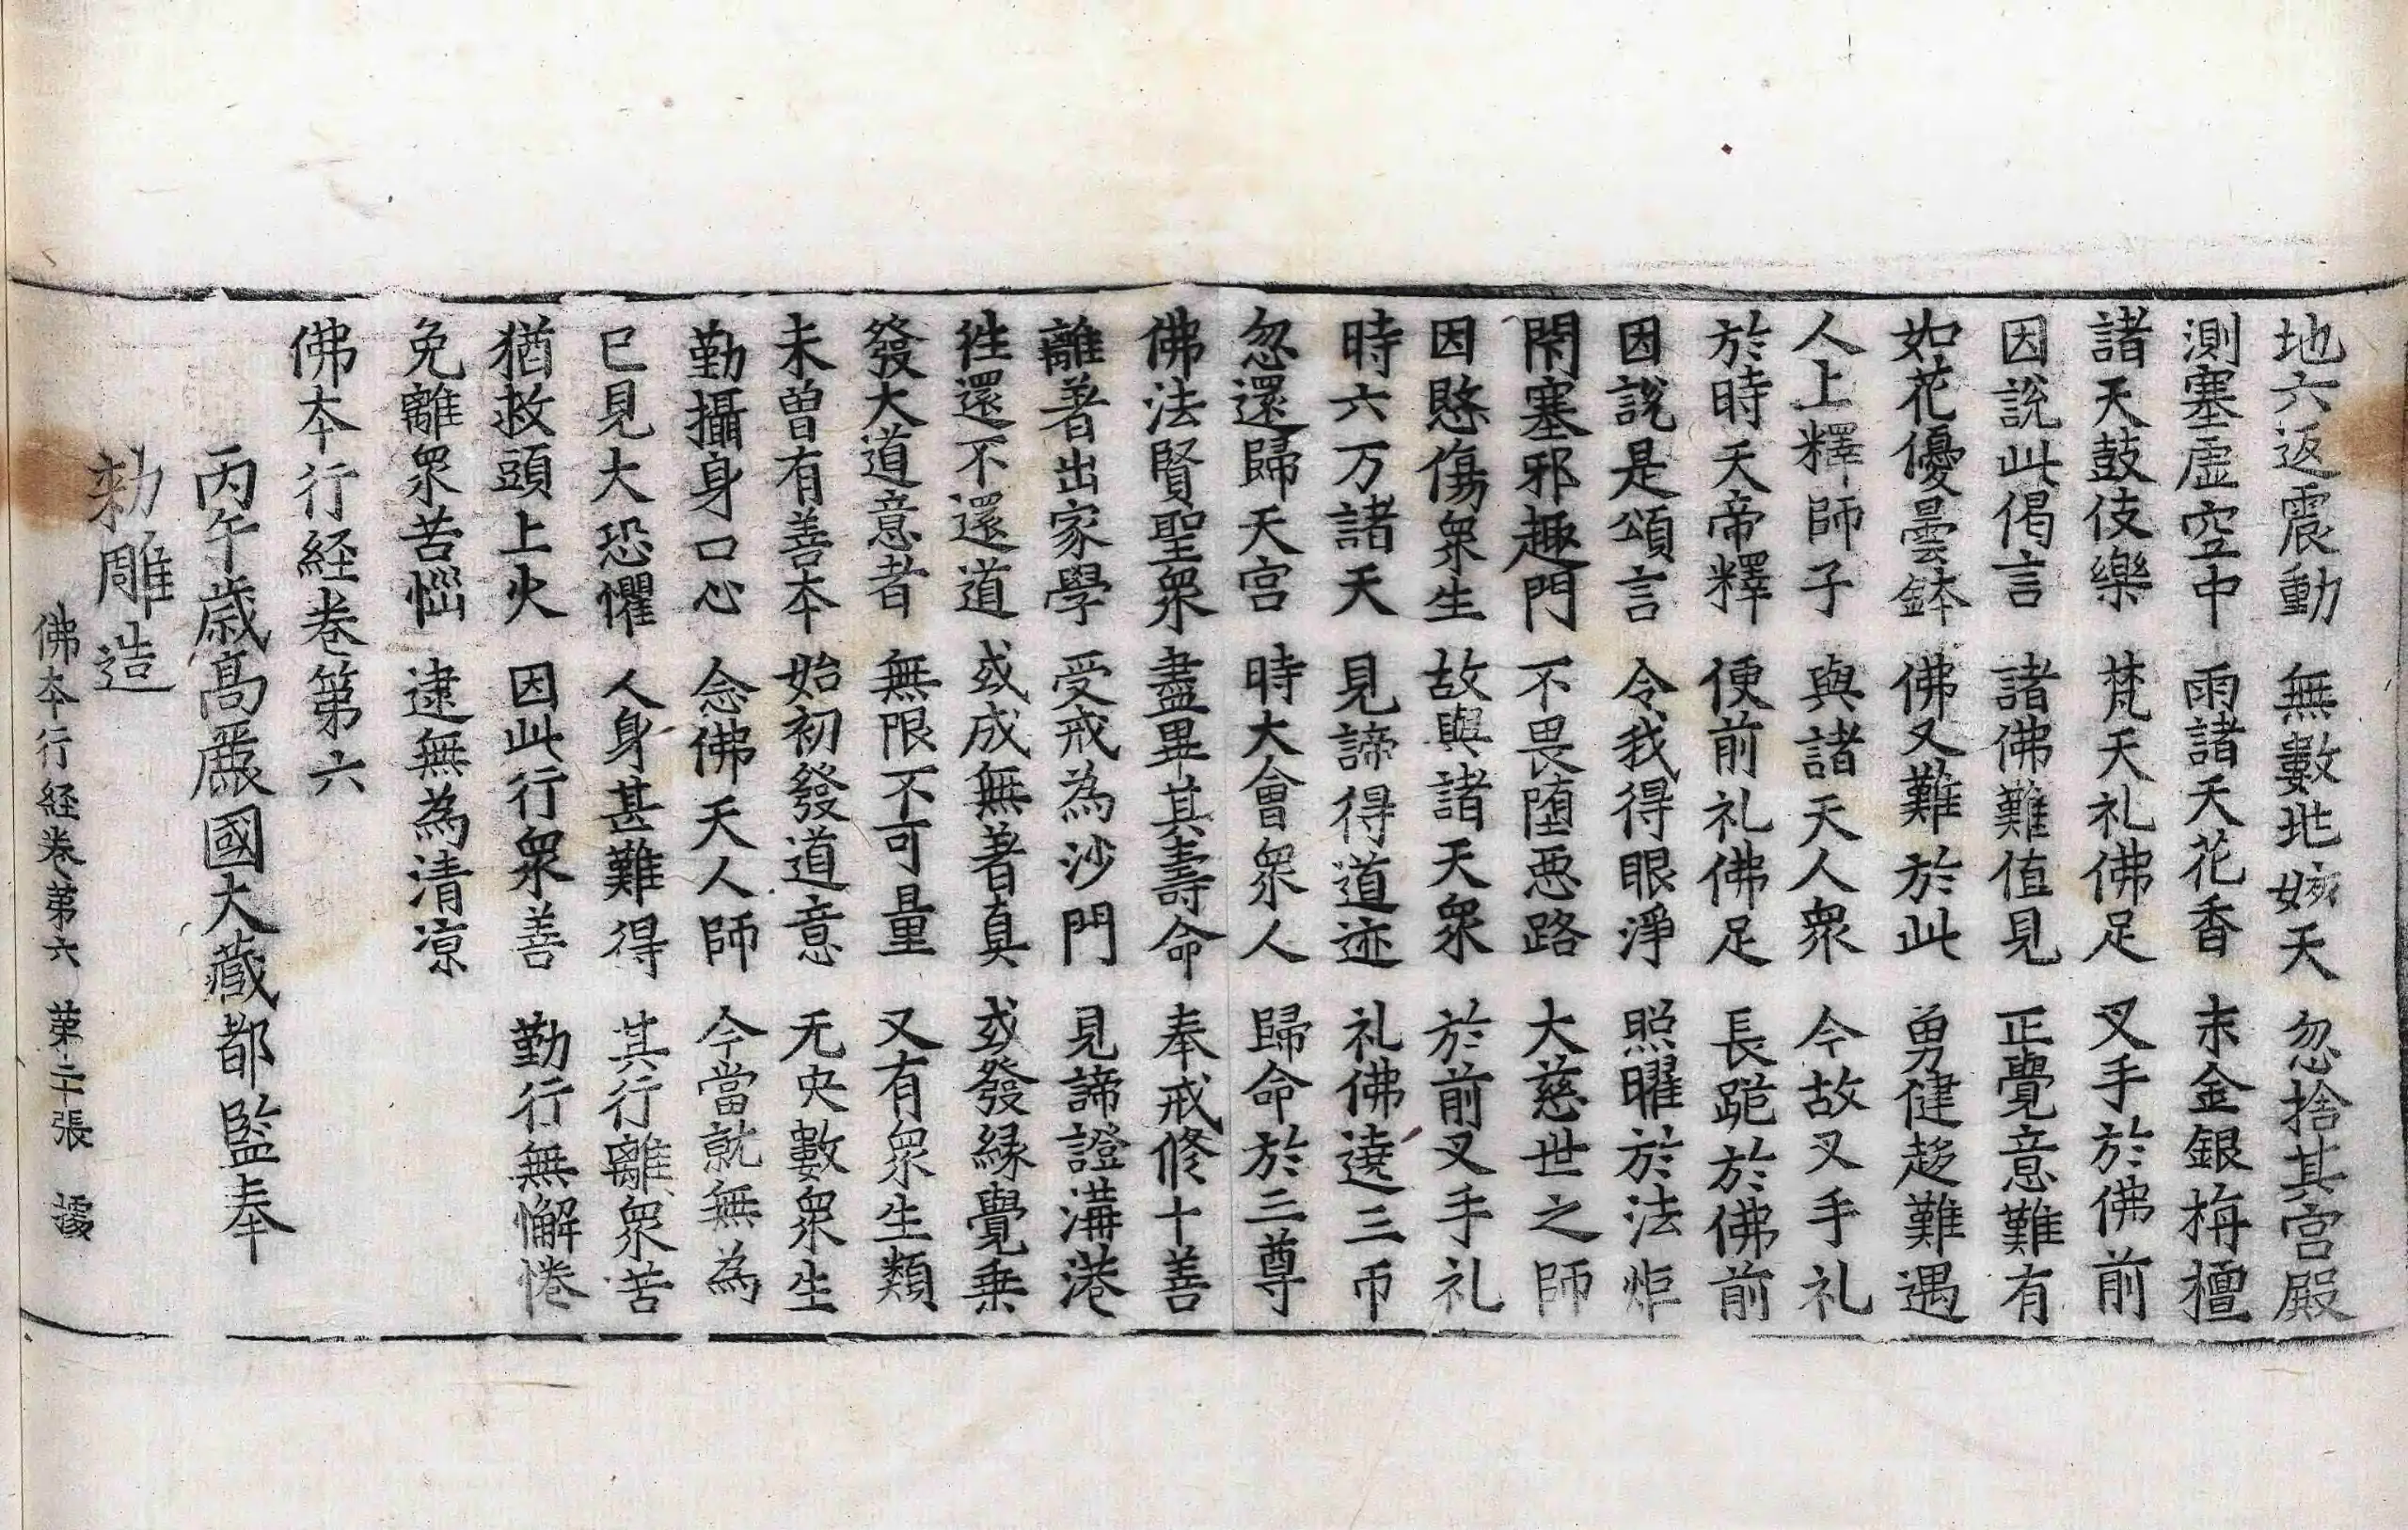 地六返震動 無數地婇天 忽捨其宮殿
測塞虛空中 雨諸天花香 末金銀栴檀
諸天鼓伎樂 梵天礼佛足 叉手於佛前
因說此偈言 諸佛難值見 正覺意難有
如花優曇鉢 佛又難於此 勇健趍難遇
人上釋師子 與諸天人衆 今故叉手礼
於時天帝釋 便前礼佛足 長跪於佛前
因說是頌言 令我得眼淨 照曜於法炬
閇塞邪趣門 不畏墮惡路 大慈世之師
因愍傷衆生 故與諸天衆 於前叉手礼
時六万諸天 見諦得道迹 礼佛遶三帀
忽還歸天宮 時大會衆人 歸命於三尊
佛法賢聖衆 盡畢其壽命 奉戒修十善
離著出家學 受戒為沙門 見諦證溝港
往還不還道 或成無著真 或發緣覺乗
發大道意者 無限不可量 又有衆生類
未曾有善本 始初發道意 无央數衆生
勤攝身口心 念佛天人師 今當就無為
已見大恐懼 人身甚難得 其行離衆苦
猶救頭上火 因此行衆善 勤行無懈惓
免離衆苦惱 逮無為清涼
佛本行経卷第六
丙午歲高麗國大藏都監奉
勑雕造
佛本行経卷第六 第二十張 據